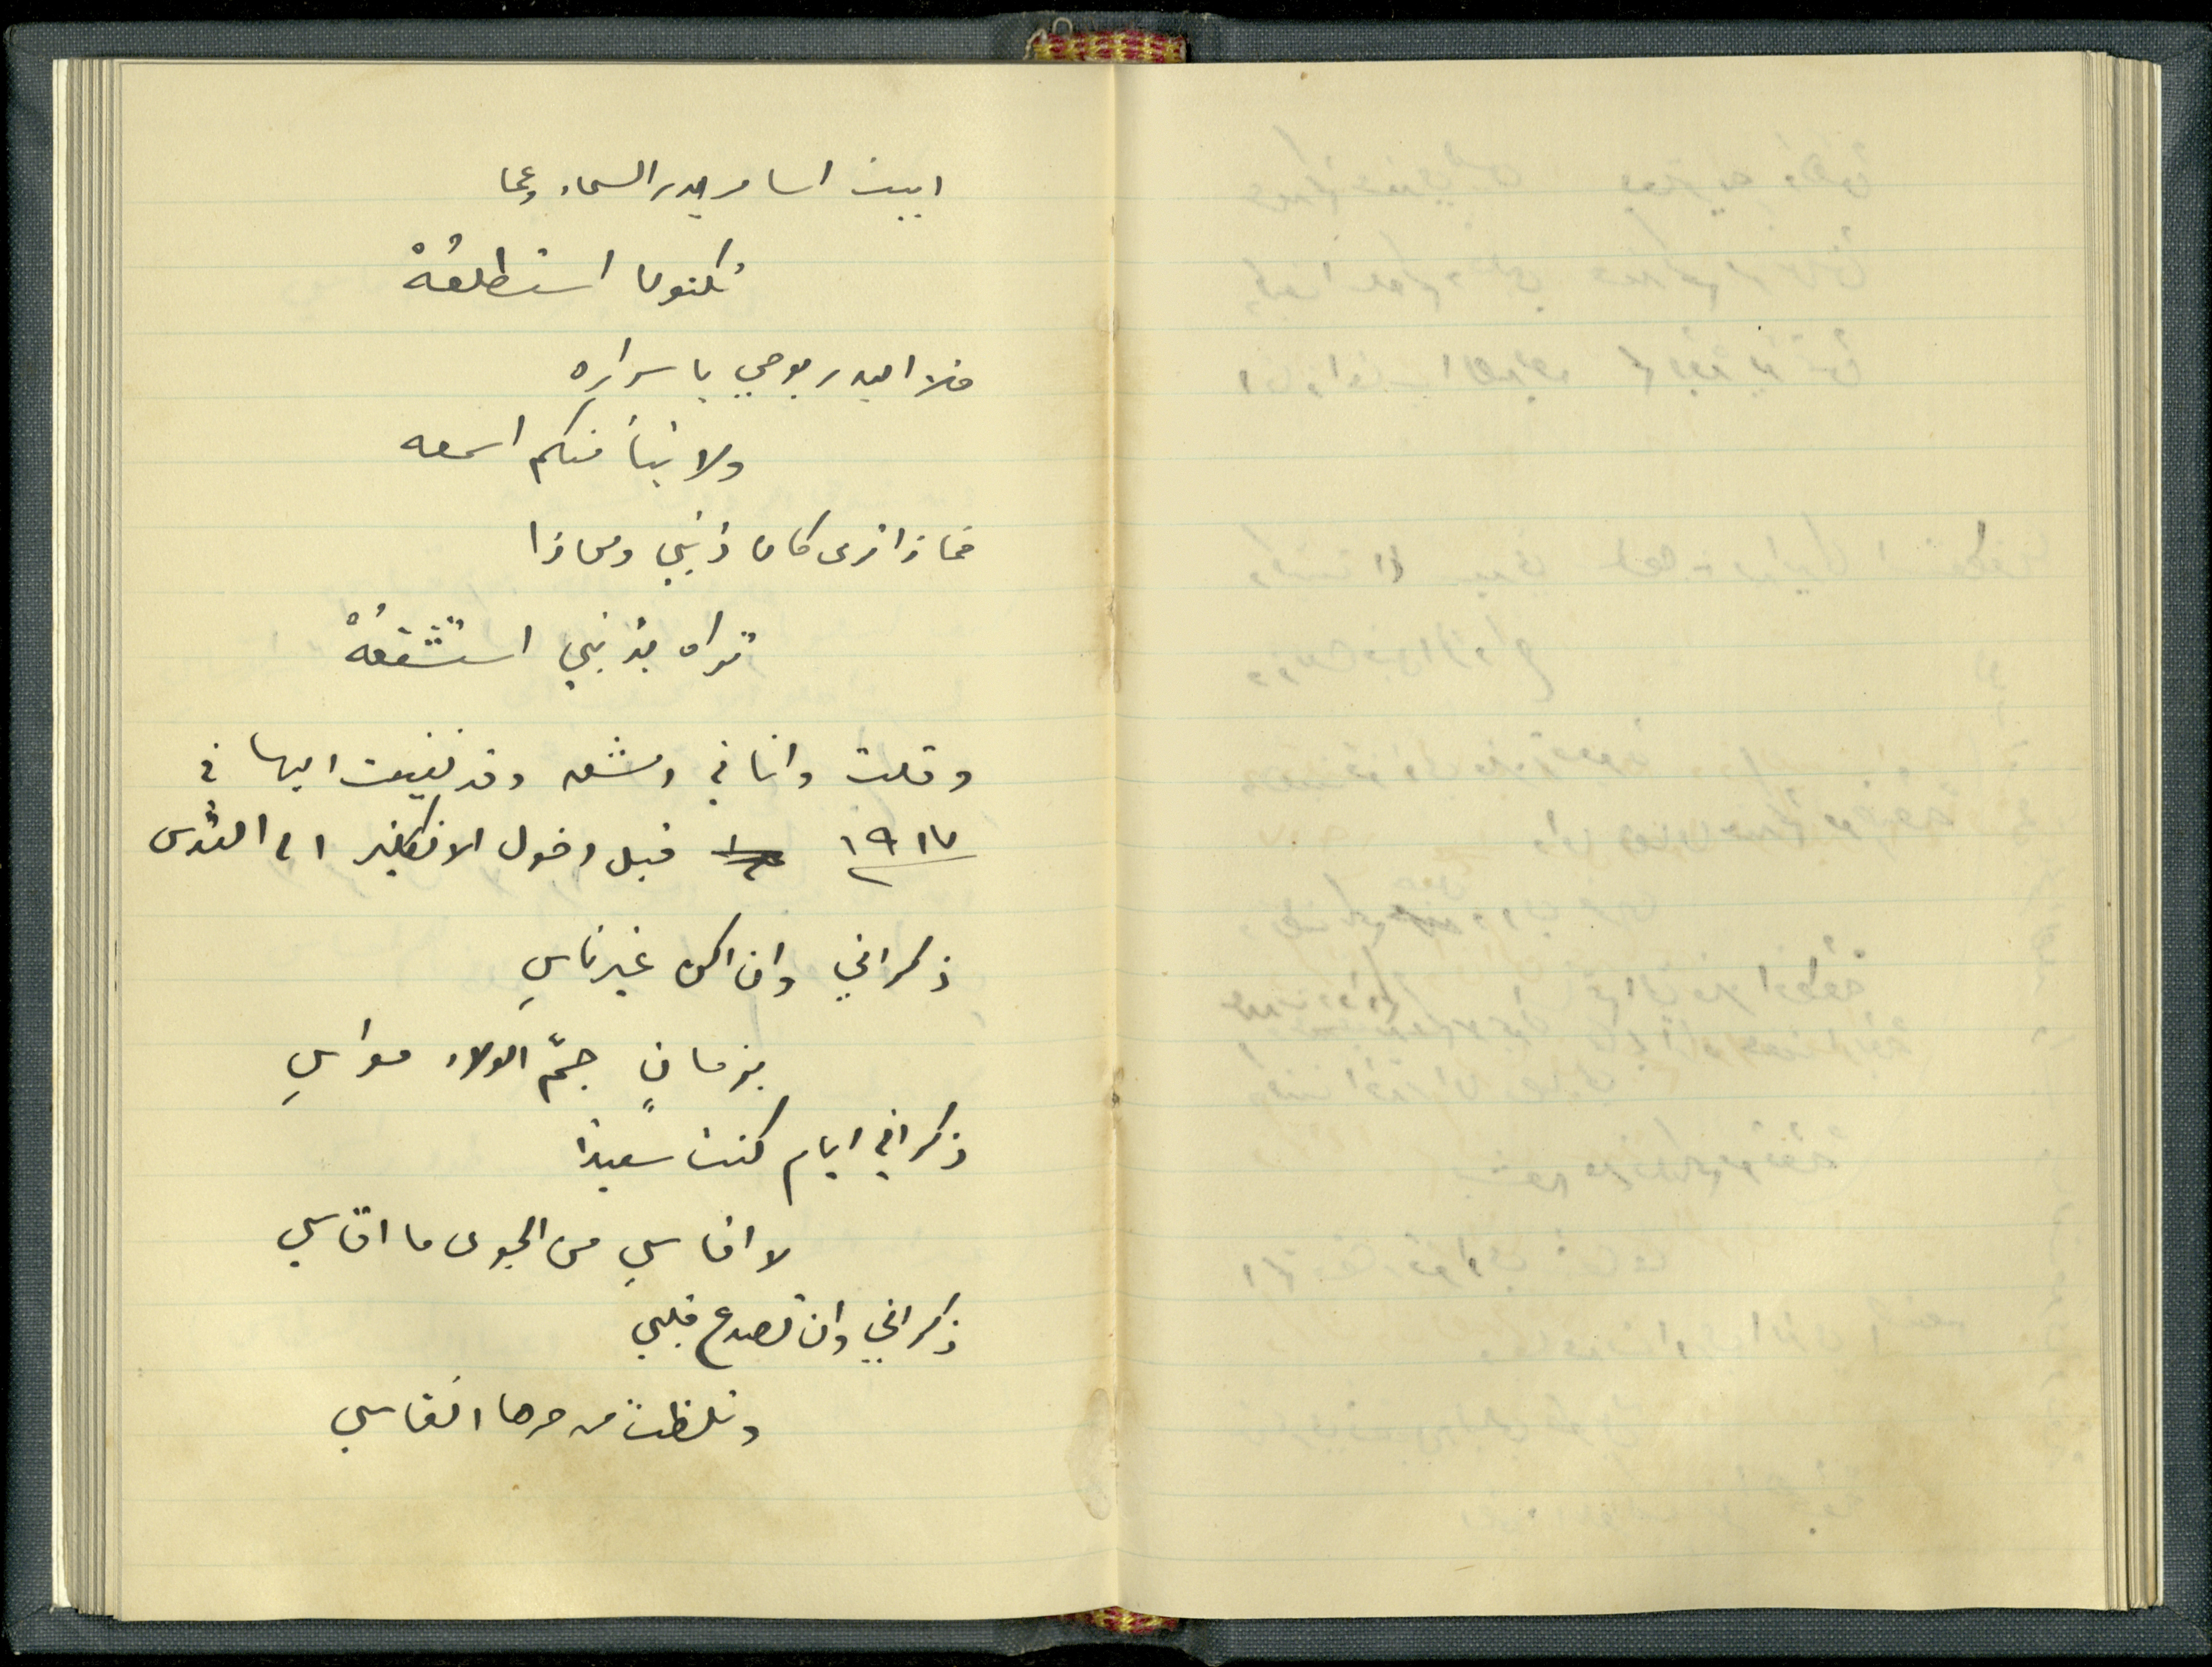 ابيت اسامر بدر السماء وعما
تكنونا استطلعُهْ
فلا البدر يوحي باسراره
ولا نبأ منكم اسمعه
فماذا ترى كان ذنبي وماذا
تراه بذنبي استشفعُهْ
وقلت وانا في دمشق وقد نفيت اليها في
١٩١٧ قبل دخول الانكليز الى القدس
ذكراني وان اكن غير ناسِ
بزمانٍ جمّ الولاء مواسِ
ذكراني ايام كنت سعيدًا
لا اقاسي من الجوى ما اقاسي
ذكراني وان تصدع قلبي
وتلظت من حرها انفاسي